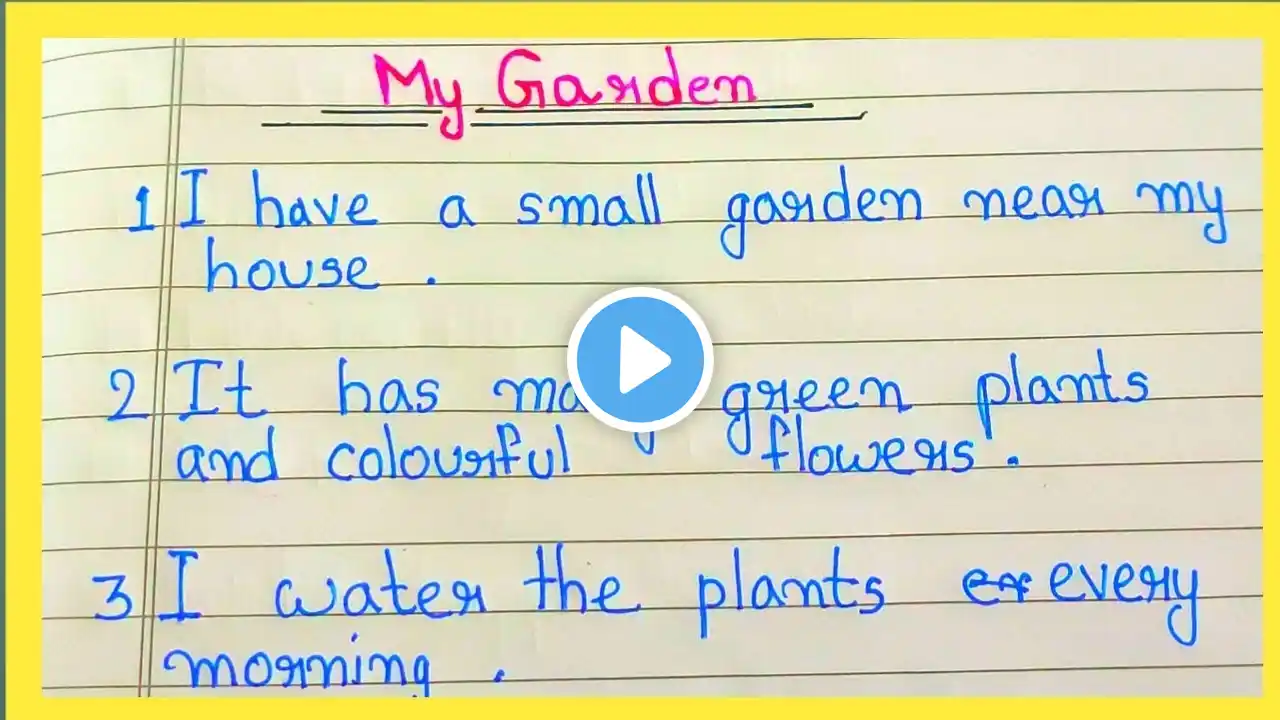 My Garden
1 I have a small garden near my
house .
2 It has green plants
and colourful flowers .
3 I water the plants every
morning .